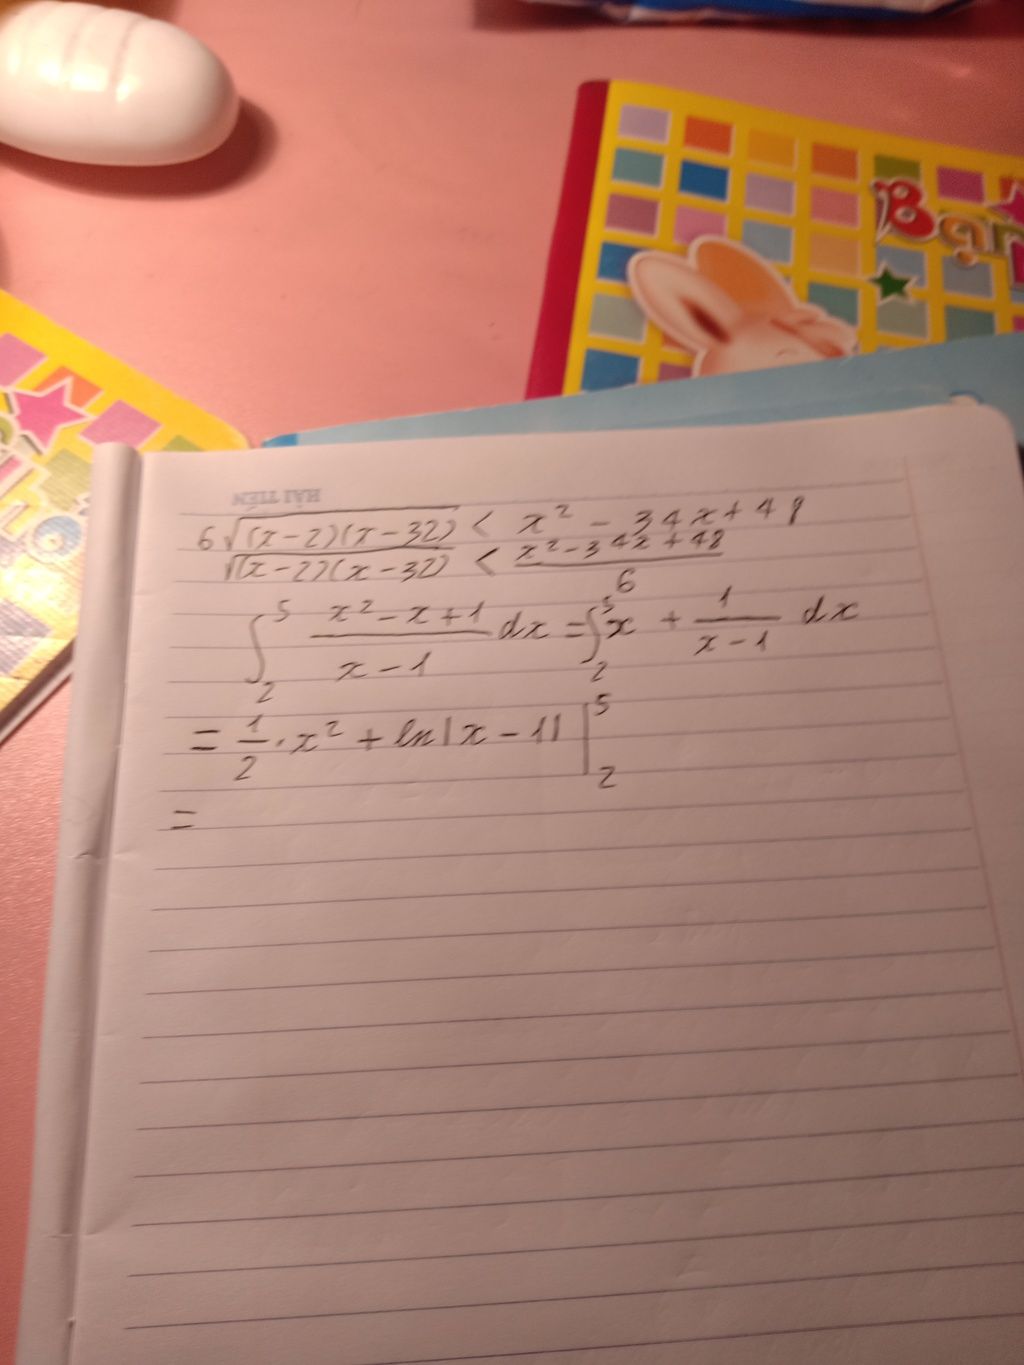 HẢI TIẾN
6√(x-2)(x-32) < x² - 34x + 48
√(x-2)(x-32) < (x²-34x+48)/6
∫₂⁵ (x²-x+1)/(x-1) dx = ∫₂⁵ x + 1/(x-1) dx
= 1/2 · x² + ln|x-1| |₂⁵
=